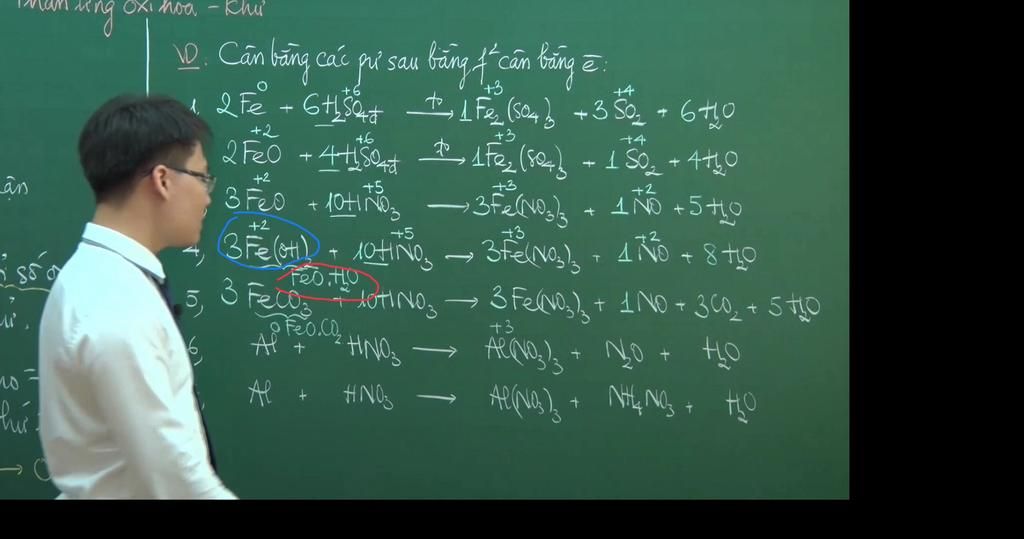 Phản ứng oxi hóa - khử
VD. Cân bằng các pư sau bằng f² cân bằng ē:
0 +6 +3 +4
1, 2Fe + 6H₂SO₄đ —t°→ 1Fe₂(SO₄)₃ + 3SO₂ + 6H₂O
+2 +6 +3 +4
2FeO + 4H₂SO₄đ —t°→ 1Fe₂(SO₄)₃ + 1SO₂ + 4H₂O
+2 +5 +3 +2
3FeO + 10HNO₃ → 3Fe(NO₃)₃ + 1NO + 5H₂O
+2 +5 +3 +2
4, 3Fe(OH)₂ + 10HNO₃ → 3Fe(NO₃)₃ + 1NO + 8H₂O
FeO.H₂O
5, 3FeCO₃ + 10HNO₃ → 3Fe(NO₃)₃ + 1NO + 3CO₂ + 5H₂O
FeO.CO₂
0 +3
6, Al + HNO₃ → Al(NO₃)₃ + N₂O + H₂O
Al + HNO₃ → Al(NO₃)₃ + NH₄NO₃ + H₂O